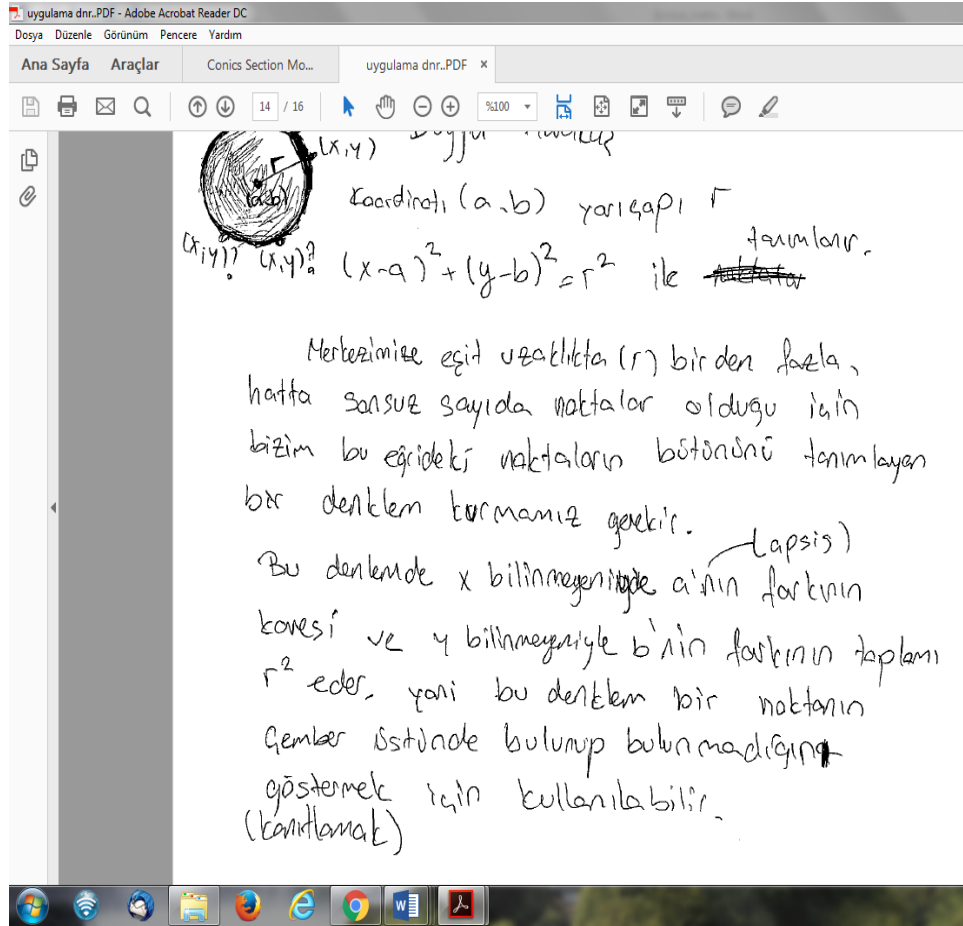 uygulama dnr..PDF - Adobe Acrobat Reader DC
Dosya Düzenle Görünüm Pencere Yardım
Ana Sayfa Araçlar Conics Section Mo... uygulama dnr..PDF ×
14 / 16 %100
(x,y)
r
(a,b)
Koordinatı (a,b) yarıçapı r
tanımlanır.
(x,y)? (x,y)? (x-a)²+(y-b)²=r² ile
Merkezimize eşit uzaklıkta (r) birden fazla,
hatta sonsuz sayıda noktalar olduğu için
bizim bu eğrideki noktaların bütününü tanımlayan
bir denklem kurmamız gerekir.
(apsis)
Bu denlemde x bilinmeyeniyle a'nın farkının
karesi ve y bilinmeyeniyle b'nin farkının toplamı
r² eder, yani bu denklem bir noktanın
Çember üstünde bulunup bulunmadığını
göstermek için kullanılabilir.
(kanıtlamak)